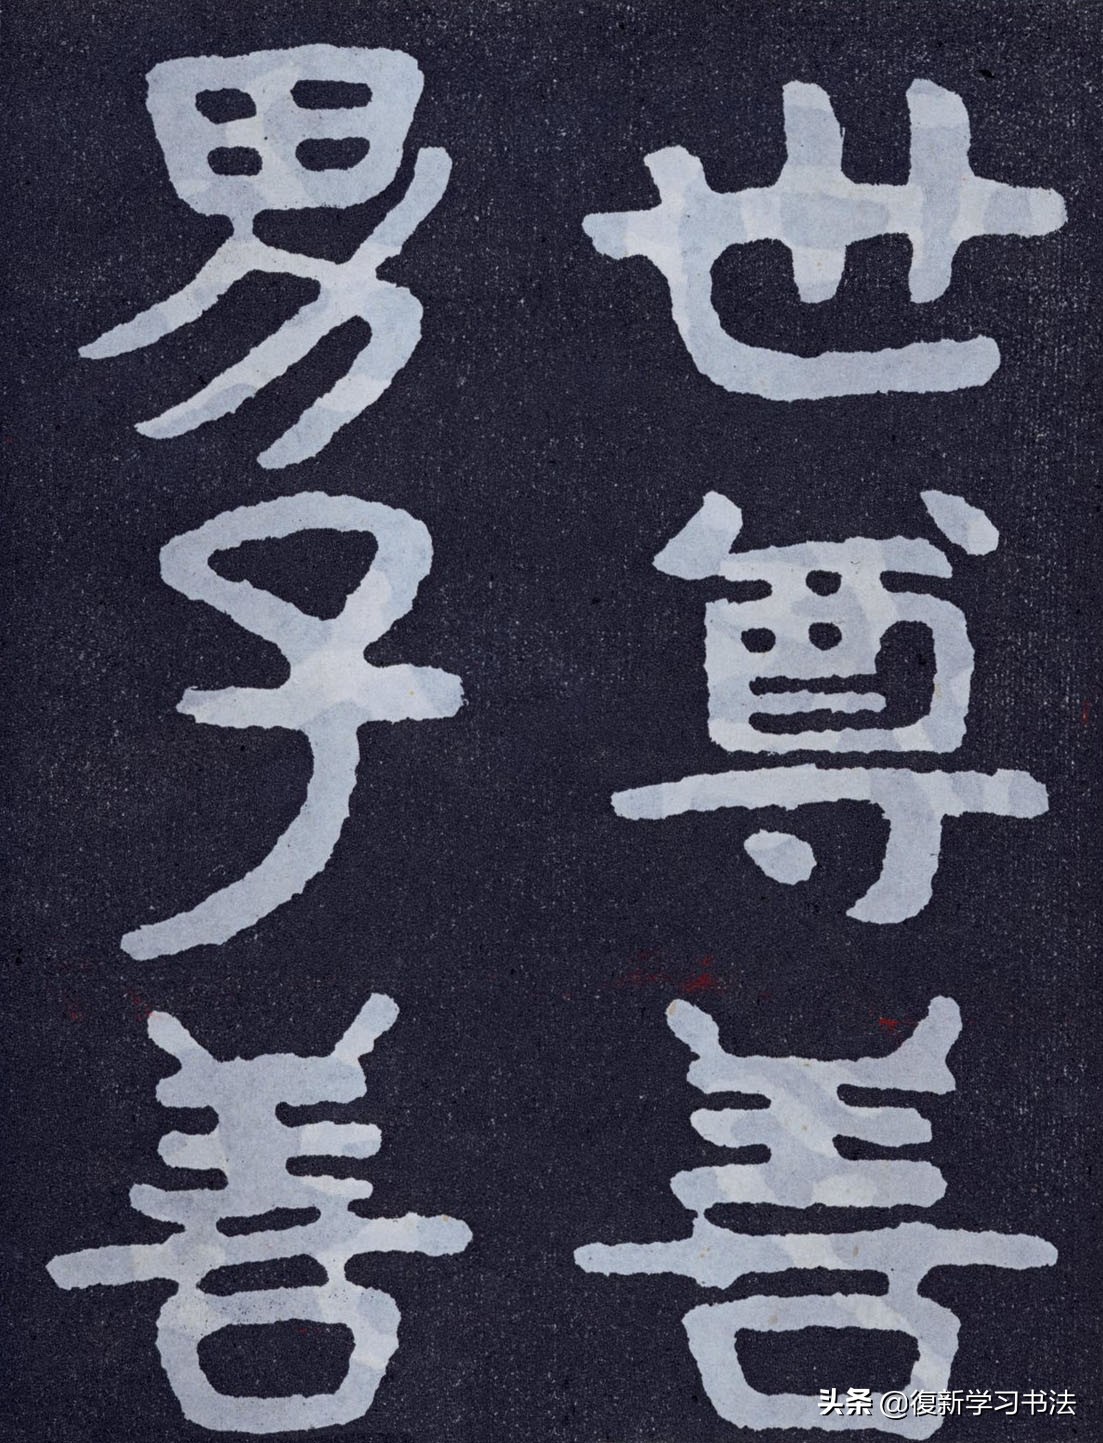 世尊善
男子善
头条 @復新学习书法